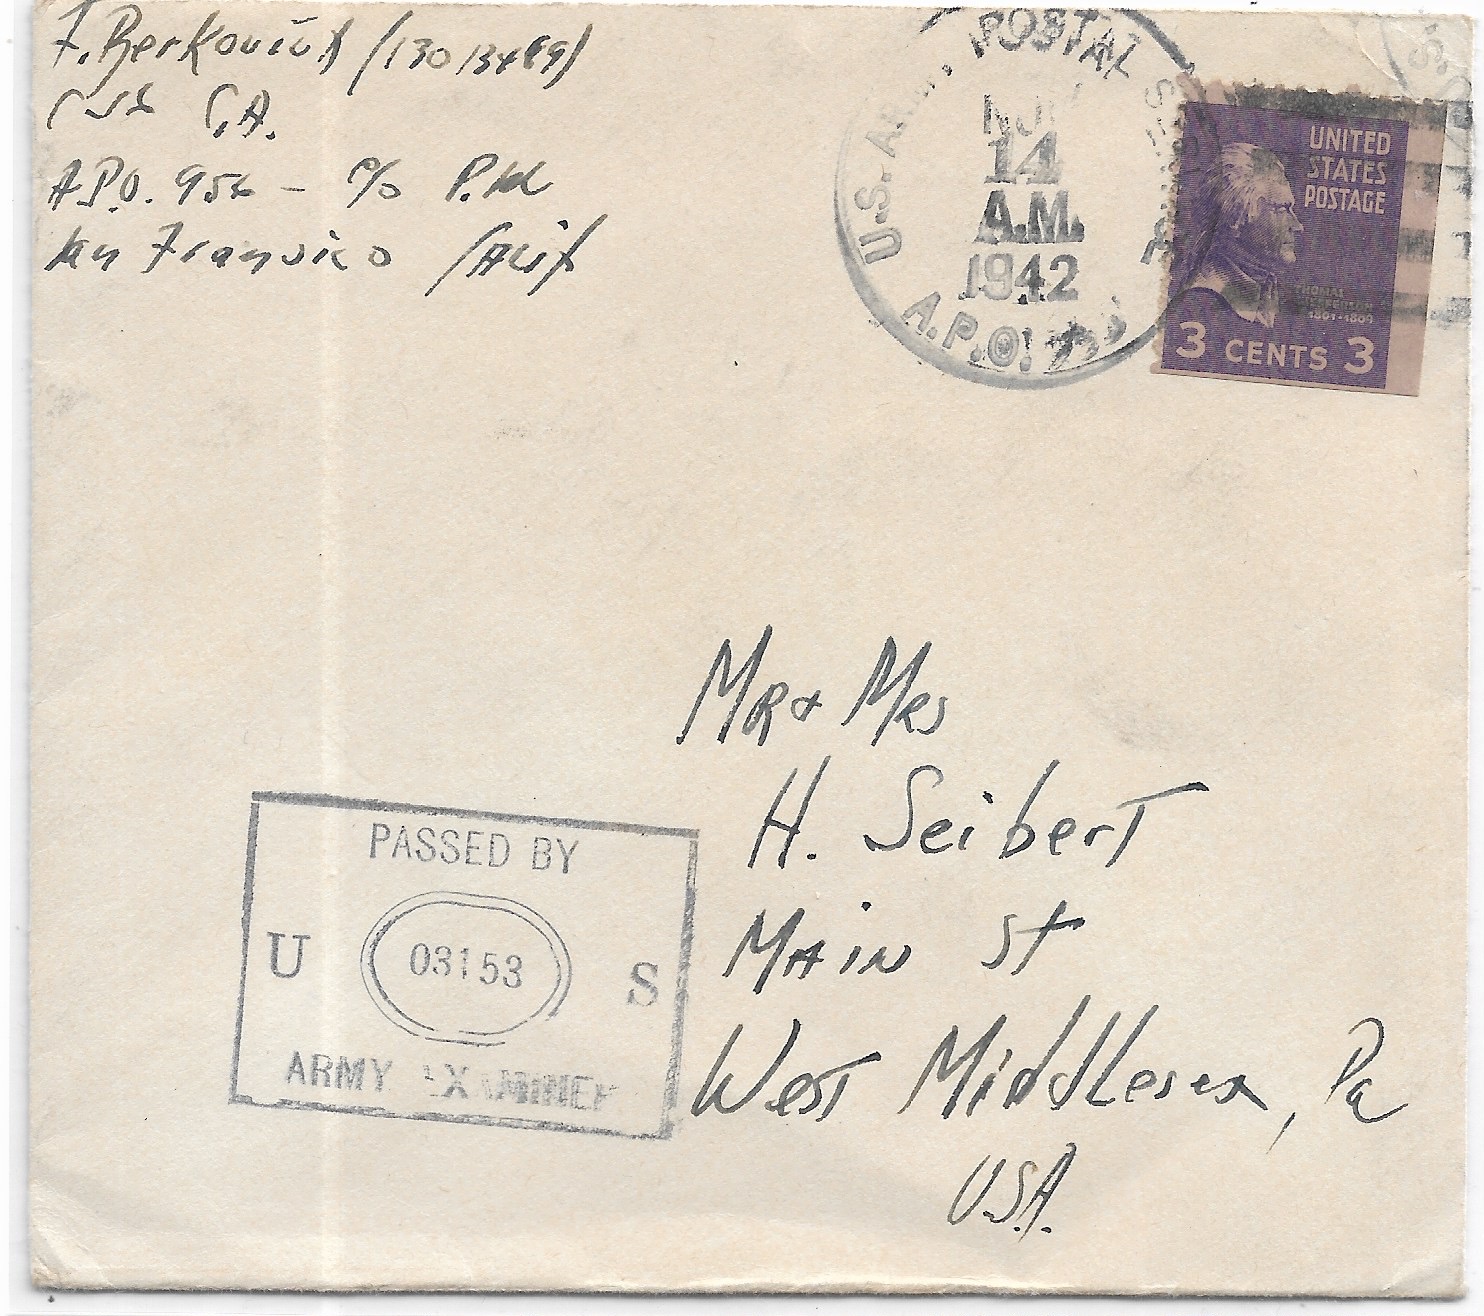 F. Berkovich (13013489)
C.A.
A.P.O. 956 - c/o P.M
San Fransico Calif
U.S. ARMY POSTAL
NOV
14
A.M.
1942
A.P.O.
UNITED
STATES
POSTAGE
THOMAS
JEFFERSON
1801-1809
3 CENTS 3
MR + MRS
H. Seibert
MAIN St
West Middlesex, Pa
U.S.A.
PASSED BY
U 03153 S
ARMY EXAMINER